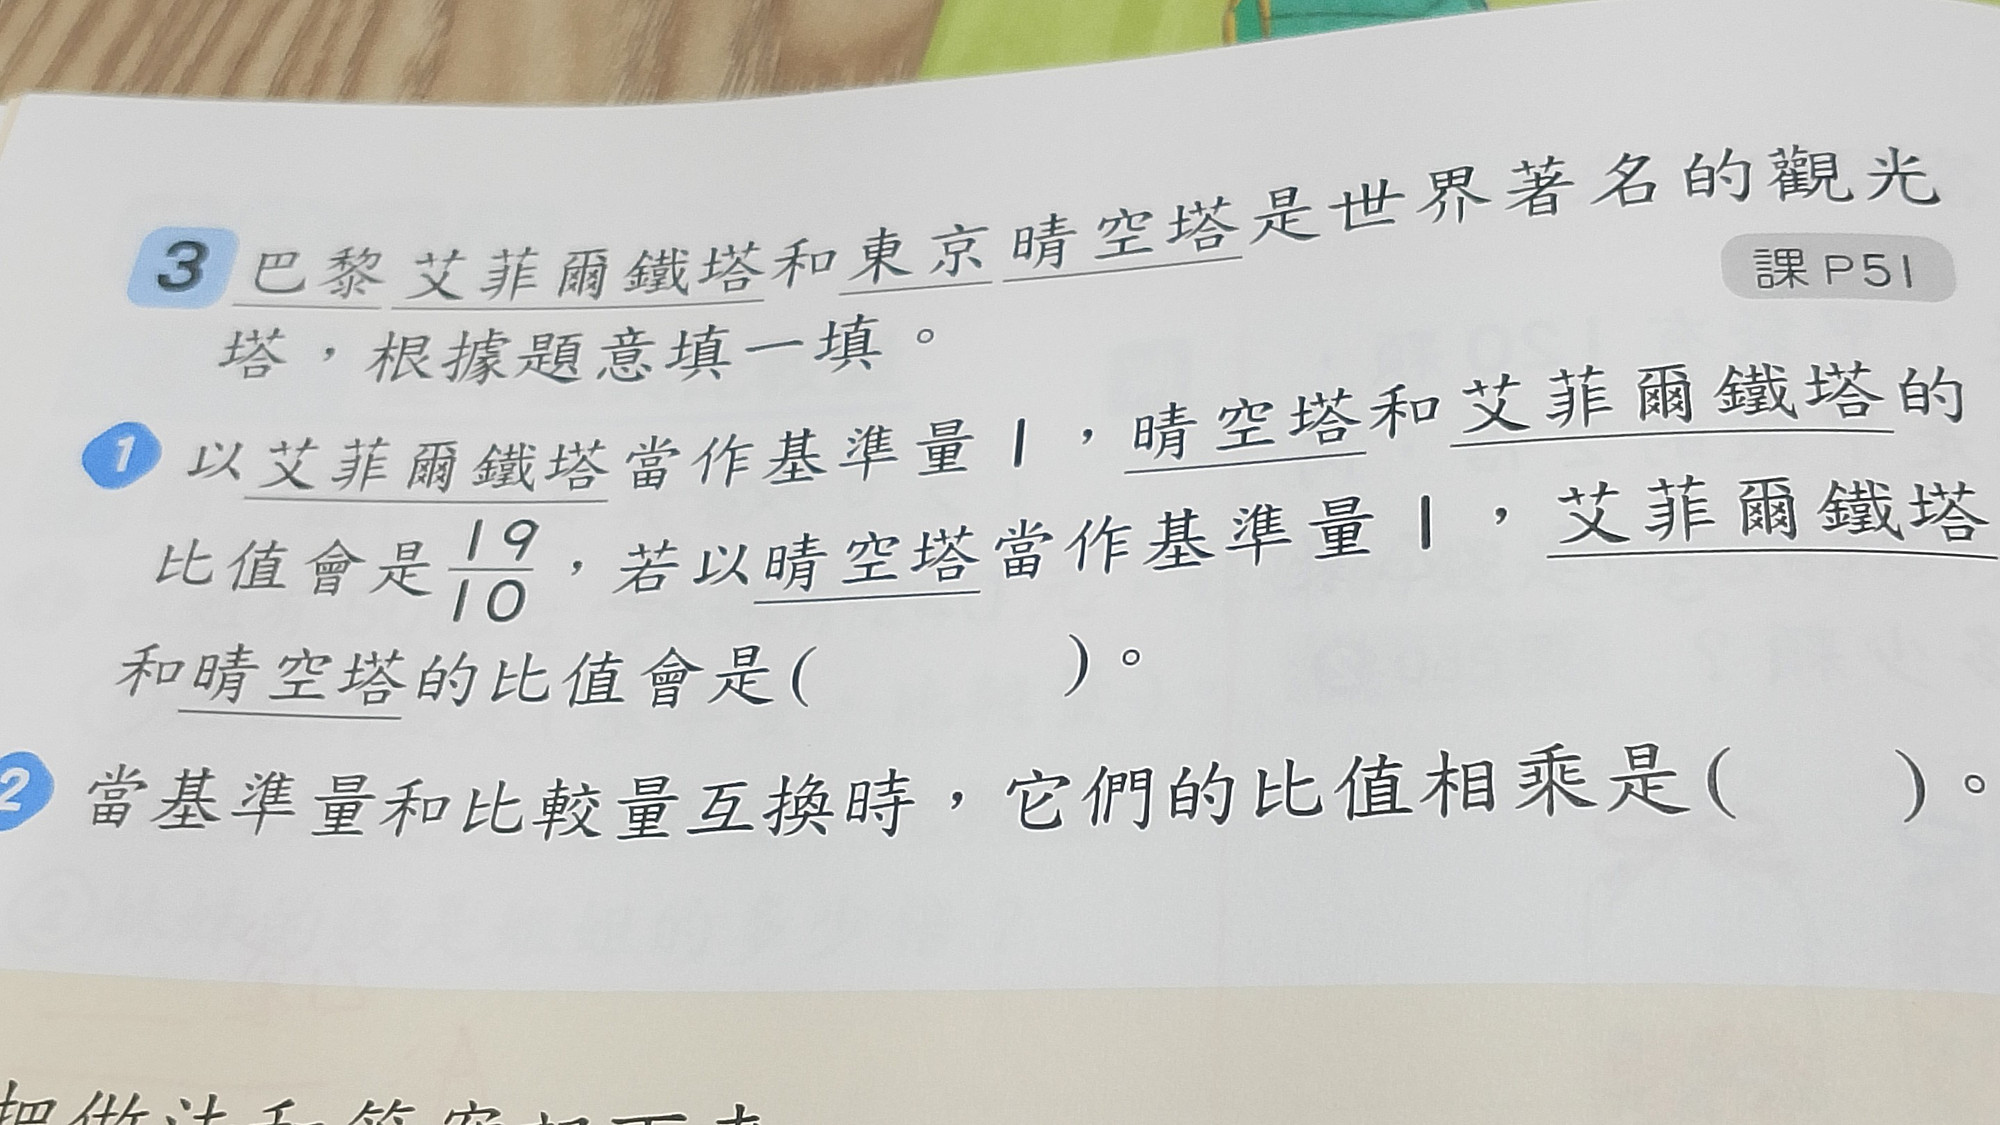 3 巴黎艾菲爾鐵塔和東京晴空塔是世界著名的觀光
課P51
塔，根據題意填一填。
1 以艾菲爾鐵塔當作基準量1，晴空塔和艾菲爾鐵塔的
比值會是19/10，若以晴空塔當作基準量1，艾菲爾鐵塔
和晴空塔的比值會是(　　)。
2 當基準量和比較量互換時，它們的比值相乘是(　　)。